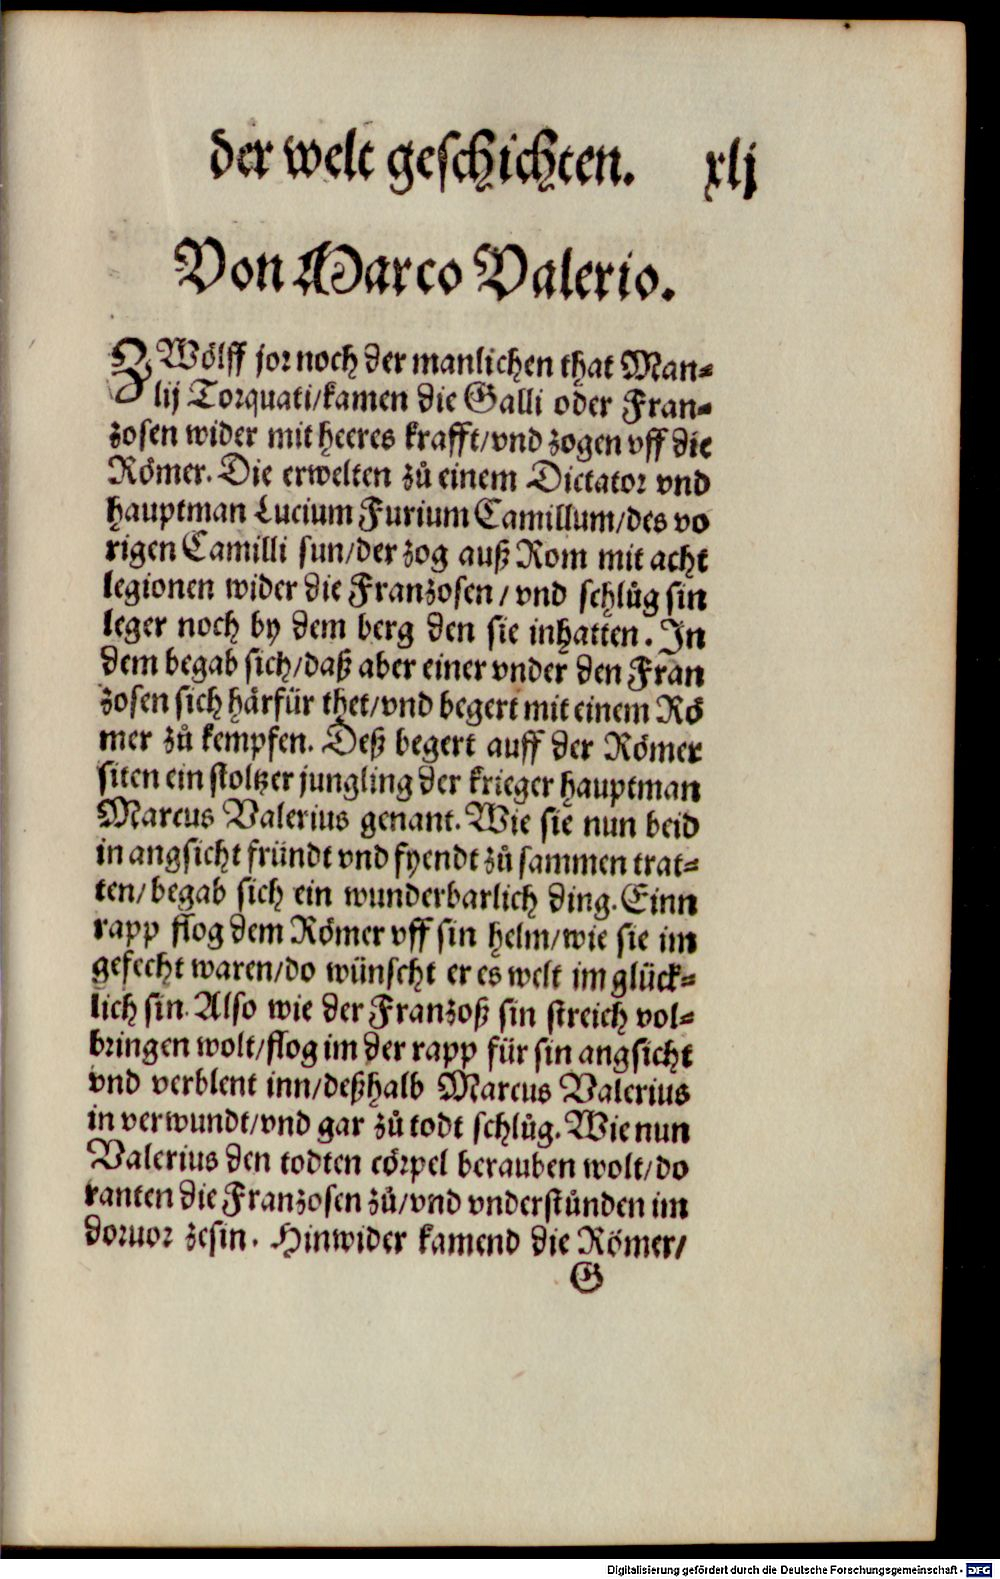 der welt geschichten. xlj
Von Marco Valerio.
ZWölff jor noch der manlichen that Man⸗
lij Torquati/kamen die Galli oder Fran⸗
zosen wider mit heeres krafft/vnd zogen vff die
Römer. Die erwelten zů einem Dictator vnd
hauptman Lucium Furium Camillum/des vo
rigen Camilli sun/der zog auß Rom mit acht
legionen wider die Franzosen/vnd schlůg sin
leger noch by dem berg den sie inhatten. In
dem begab sich/daß aber einer vnder den Fran
zosen sich härfür thet/vnd begert mit einem Rö
mer zů kempfen. Deß begert auff der Römer
siten ein stoltzer jungling der krieger hauptman
Marcus Valerius genant. Wie sie nun beid
in angsicht fründt vnd fyendt zů sammen trat⸗
ten/begab sich ein wunderbarlich ding. Einn
rapp flog dem Römer vff sin helm/wie sie im
gefecht waren/do wünscht er es welt im glück⸗
lich sin. Also wie der Franzoß sin streich vol⸗
bringen wolt/flog im der rapp für sin angsicht
vnd verblent inn/deßhalb Marcus Valerius
in verwundt/vnd gar zů todt schlůg. Wie nun
Valerius den todten cörpel berauben wolt/do
ranten die Franzosen zů/vnd vnderstůnden im
doruor zesin. Hinwider kamend die Römer/
G
Digitalisierung gefördert durch die Deutsche Forschungsgemeinschaft - DFG